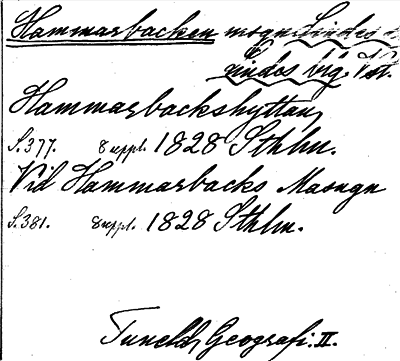 Hammarbacken mogn Lindes
Lindes brg. Vstm.
Hammarbackshyttan,
S. 377. 8 uppl. 1828 Sthlm.
Vid Hammarbacks Masugn
S. 381. 8 uppl. 1828 Sthlm.
Tuneld, Geografi. II.